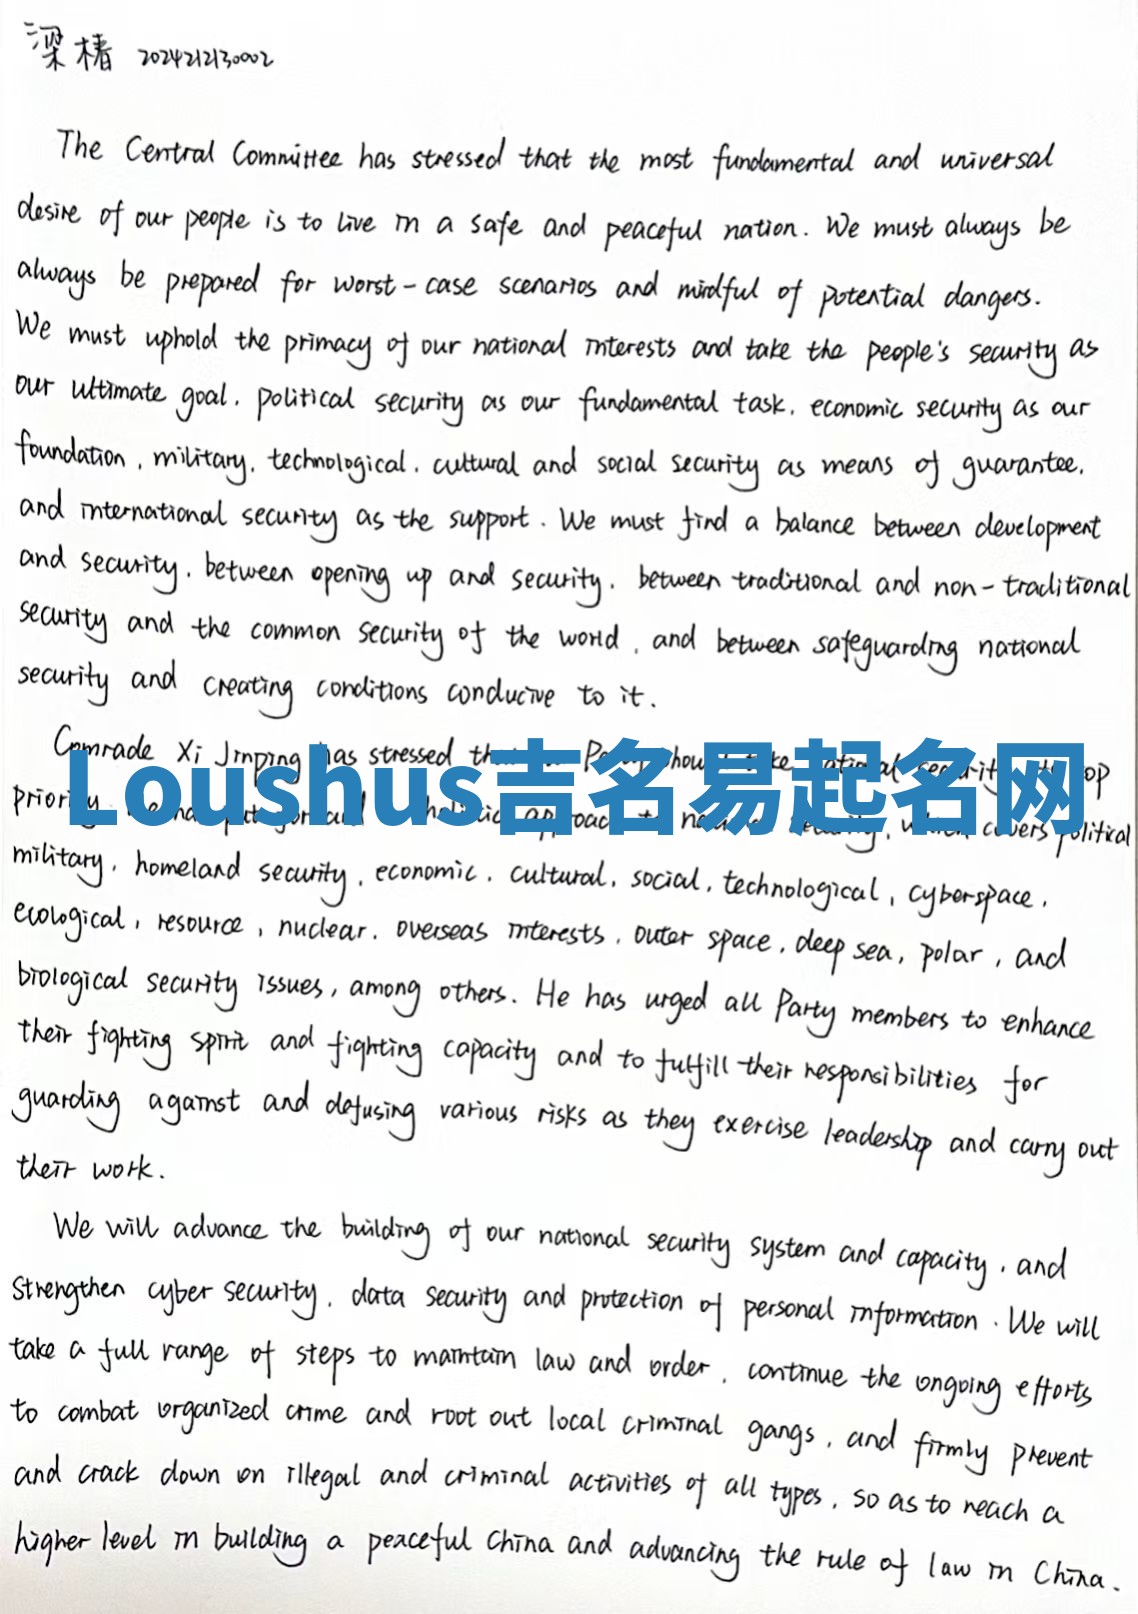 梁椿 2024212130002
The Central Committee has stressed that the most fundamental and universal
desire of our people is to live in a safe and peaceful nation. We must always be
always be prepared for worst-case scenarios and mindful of potential dangers.
We must uphold the primacy of our national interests and take the people's security as
our ultimate goal, political security as our fundamental task, economic security as our
foundation, military, technological, cultural and social security as means of guarantee,
and international security as the support. We must find a balance between development
and security, between opening up and security, between traditional and non-traditional
security and the common security of the world, and between safeguarding national
security and creating conditions conducive to it.
Comrade Xi Jinping has stressed
Loushus吉名易起名网
priority covers political
military, homeland security, economic, cultural, social, technological, cyberspace,
ecological, resource, nuclear, overseas interests, outer space, deep sea, polar, and
biological security issues, among others. He has urged all Party members to enhance
their fighting spirit and fighting capacity and to fulfill their responsibilities for
guarding against and defusing various risks as they exercise leadership and carry out
their work.
We will advance the building of our national security system and capacity, and
strengthen cyber security, data security and protection of personal information. We will
take a full range of steps to maintain law and order, continue the ongoing efforts
to combat organized crime and root out local criminal gangs, and firmly prevent
and crack down on illegal and criminal activities of all types, so as to reach a
higher level in building a peaceful China and advancing the rule of law in China.